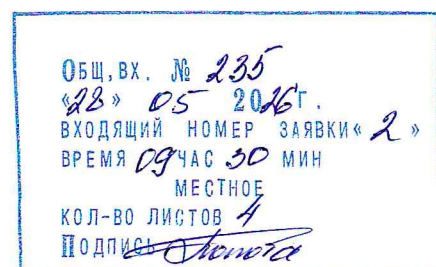 Общ.вх. № 235
«28» 05 2026г.
ВХОДЯЩИЙ НОМЕР ЗАЯВКИ« 2 »
ВРЕМЯ 09 ЧАС 30 МИН
МЕСТНОЕ
КОЛ-ВО ЛИСТОВ 4
Подпись